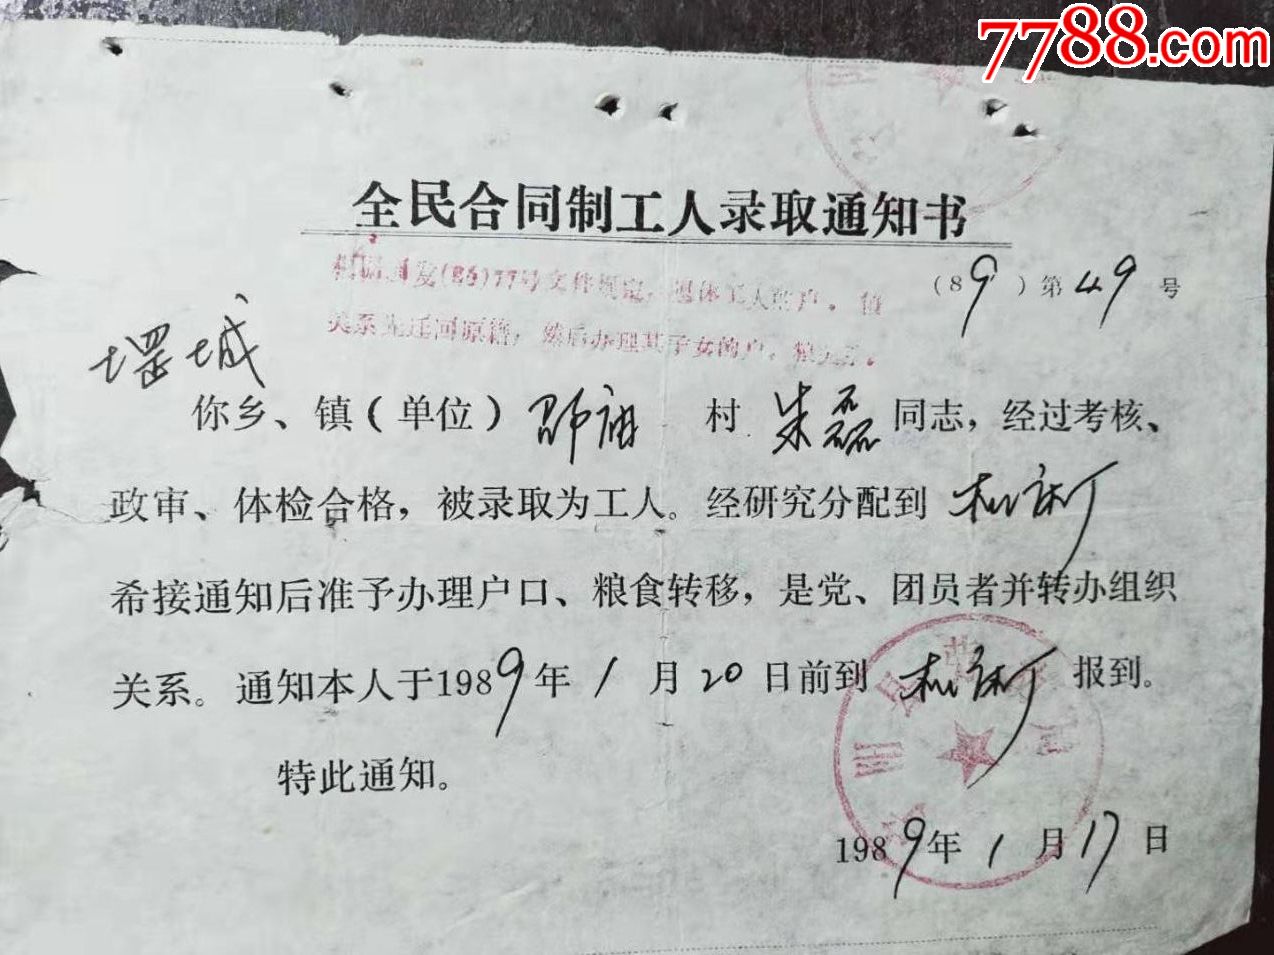 7788.com
全民合同制工人录取通知书
(89)第49号
发(86)77号文件规定，退休工人的户、
关系先迁回原籍，然后办理其子女的户、粮关系。
堽城
你乡、镇(单位) 村 朱磊 同志，经过考核、
政审、体检合格，被录取为工人。经研究分配到
希接通知后准予办理户口、粮食转移，是党、团员者并转办组织
关系。通知本人于1989年1月20日前到 报到。
特此通知。
1989年1月17日